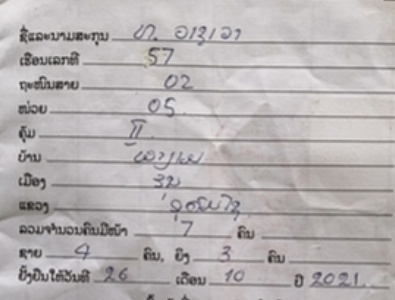 ຊື່ແລະນາມສະກຸນ ທ.
ເຮືອນເລກທີ 57
ຖະໜົນສາຍ 02
ໜ່ວຍ 05
ຄຸ້ມ II
ບ້ານ
ເມືອງ ຮຸນ
ແຂວງ ອຸດົມໄຊ
ລວມຈຳນວນຄົນມີໜ້າ 7 ຄົນ
ຊາຍ 4 ຄົນ, ຍິງ 3 ຄົນ
ຢັ້ງຢືນໃຫ້ວັນທີ 26 ເດືອນ 10 ປີ 2021